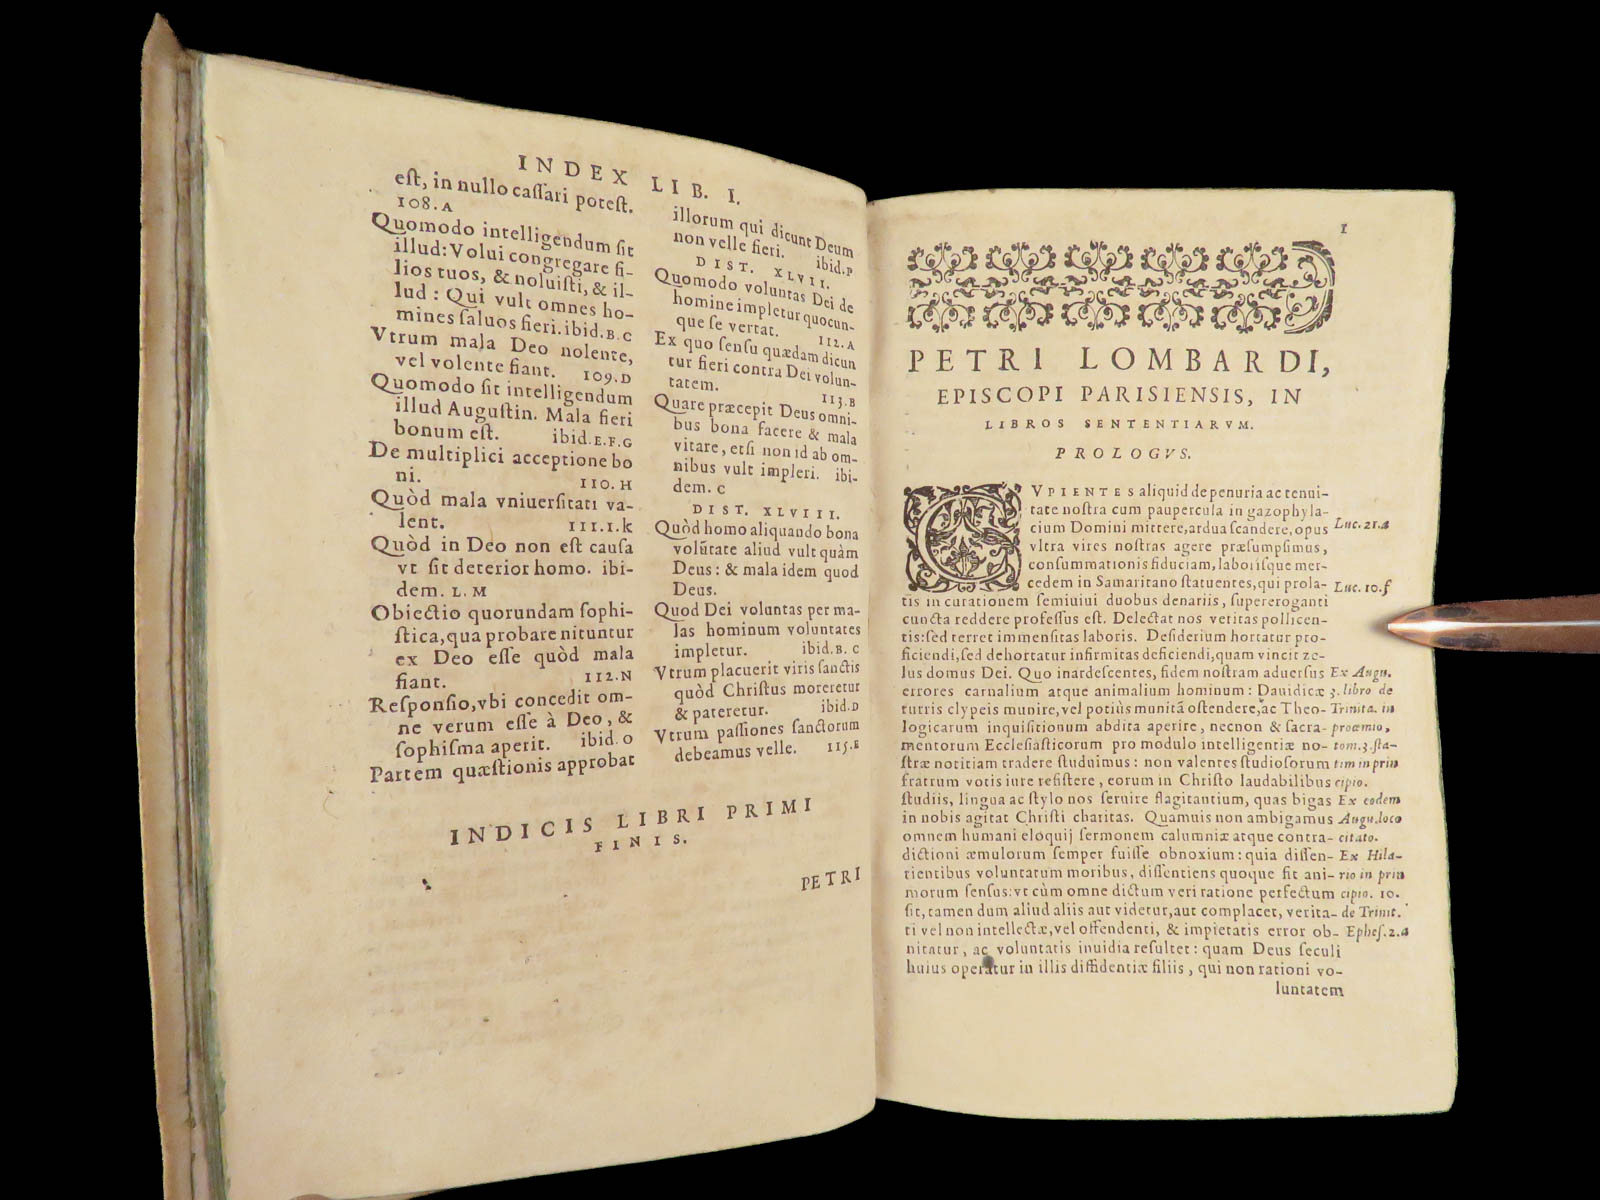 INDEX LIB. I.
eſt, in nullo caſſari poteſt.
108.A
Quomodo intelligendum ſit
illud: Volui congregare fi-
lios tuos, & noluiſti, & il-
lud : Qui vult omnes ho-
mines ſaluos fieri. ibid.B.C
Vtrum mala Deo nolente,
vel volente fiant. 109.D
Quomodo ſit intelligendum
illud Auguſtin. Mala fieri
bonum eſt. ibid.E.F.G
De multiplici acceptione bo
ni. 110.H
Quòd mala vniuerſitati va-
lent. 111.I.k
Quòd in Deo non eſt cauſa
vt ſit deterior homo. ibi-
dem. L.M
Obiectio quorundam ſophi-
ſtica, qua probare nituntur
ex Deo eſſe quòd mala
fiant. 112.N
Reſponſio, vbi concedit om-
ne verum eſſe à Deo, &
ſophiſma aperit. ibid.O
Partem quæſtionis approbat
illorum qui dicunt Deum
non velle fieri. ibid.P
DIST. XLVII.
Quomodo voluntas Dei de
homine impletur quocun-
que ſe vertat. 112.A
Ex quo ſenſu quædam dicun
tur fieri contra Dei volun-
tatem. 113.B
Quare præcepit Deus omni-
bus bona facere & mala
vitare, etſi non id ab om-
nibus vult impleri. ibi-
dem. C
DIST. XLVIII.
Quòd homo aliquando bona
volūtate aliud vult quàm
Deus : & mala idem quod
Deus.
Quod Dei voluntas per ma-
las hominum voluntates
impletur. ibid.B. C
Vtrum placuerit viris ſanctis
quòd Chriſtus moreretur
& pateretur. ibid.D
Vtrum paſſiones ſanctorum
debeamus velle. 115.E
INDICIS LIBRI PRIMI
FINIS.
PETRI
1
PETRI LOMBARDI,
EPISCOPI PARISIENSIS, IN
LIBROS SENTENTIARVM.
PROLOGVS.
CVPIENTES aliquid de penuria ac tenui-
tate noſtra cum paupercula in gazophyla-
cium Domini mittere, ardua ſcandere, opus Luc.21.a
vltra vires noſtras agere præſumpſimus,
conſummationis fiduciam, laboriſque mer-
cedem in Samaritano ſtatuentes, qui prola- Luc.10.f
tis in curationem ſemiuiui duobus denariis, ſupereroganti
cuncta reddere profeſſus eſt. Delectat nos veritas pollicen-
tis: ſed terret immenſitas laboris. Deſiderium hortatur pro-
ficiendi, ſed dehortatur infirmitas deficiendi, quam vincit ze-
lus domus Dei. Quo inardeſcentes, fidem noſtram aduerſus Ex Augu.
errores carnalium atque animalium hominum : Dauidicæ 3. libro de
turris clypeis munire, vel potiùs munitā oſtendere, ac Theo- Trinita. in
logicarum inquiſitionum abdita aperire, necnon & ſacra- proœmio,
mentorum Eccleſiaſticorum pro modulo intelligentiæ no- tom.3.ſta-
ſtræ notitiam tradere ſtuduimus : non valentes ſtudioſorum tim in prin
fratrum votis iure reſiſtere, eorum in Chriſto laudabilibus cipio.
ſtudiis, lingua ac ſtylo nos ſeruire flagitantium, quas bigas Ex eodem
in nobis agitat Chriſti charitas. Quamuis non ambigamus Augu.loco
omnem humani eloquij ſermonem calumniæ atque contra- citato.
dictioni æmulorum ſemper fuiſſe obnoxium : quia diſſen- Ex Hila-
tientibus voluntatum moribus, diſſentiens quoque fit ani- rio in prin
morum ſenſus: vt cùm omne dictum veri ratione perfectum cipio. 10.
ſit, tamen dum aliud aliis aut videtur, aut complacet, verita- de Trinit.
ti vel non intellectæ, vel offendenti, & impietatis error ob- Epheſ.2.a
nitatur, ac voluntatis inuidia reſultet : quam Deus ſeculi
huius operatur in illis diffidentiæ filiis, qui non rationi vo-
luntatem